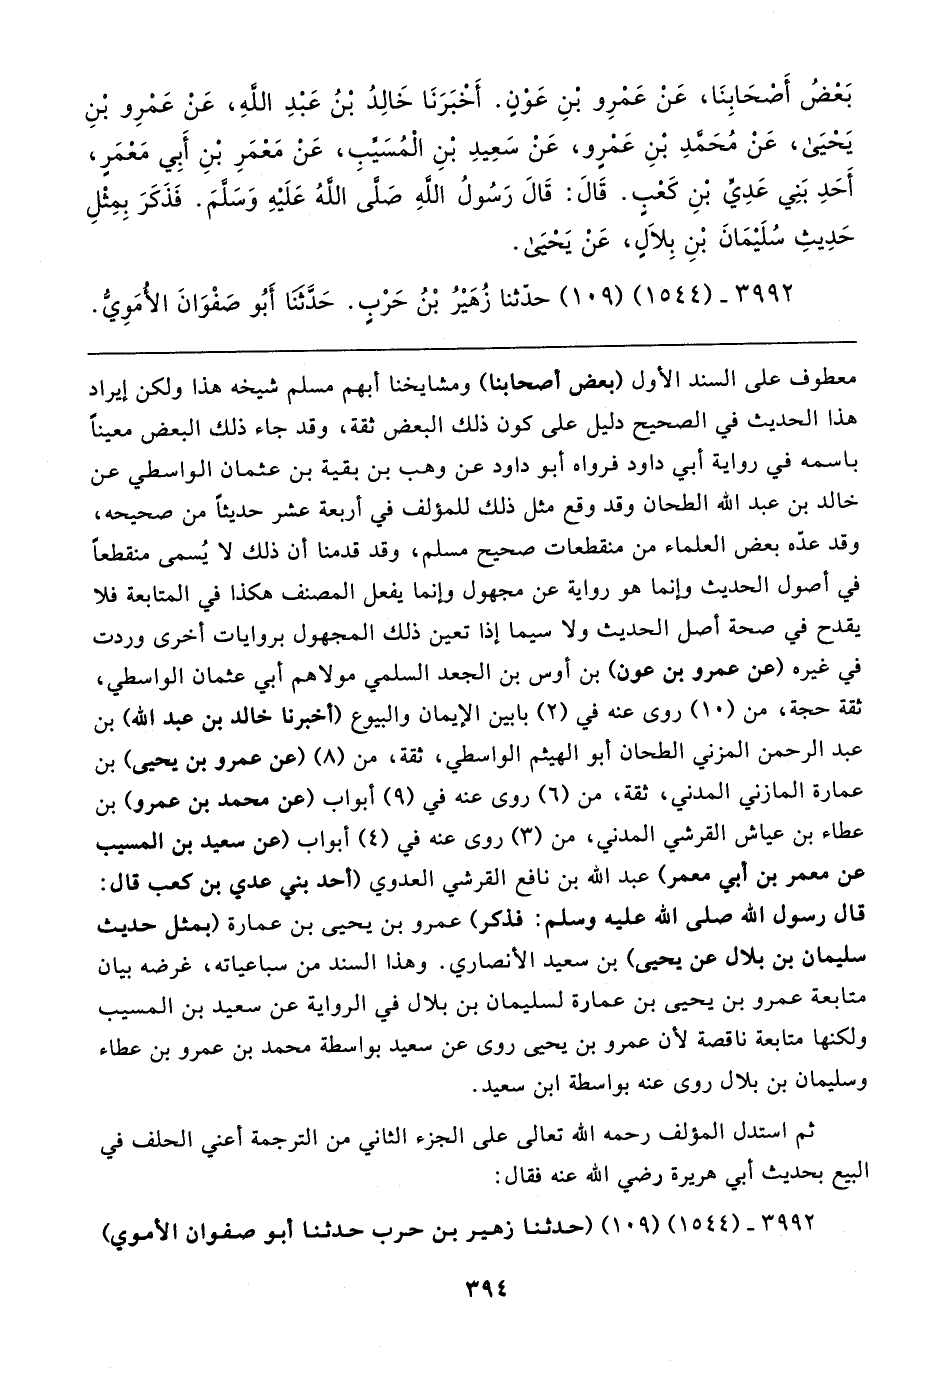 بَعْضُ أَصْحَابِنَا، عَنْ عَمْرِو بْنِ عَوْنٍ. أَخْبَرَنَا خَالِدُ بْنُ عَبْدِ اللَّهِ، عَنْ عَمْرِو بْنِ
يَحْيَىٰ، عَنْ مُحَمَّدِ بْنِ عَمْرٍو، عَنْ سَعِيدِ بْنِ الْمُسَيِّبِ، عَنْ مَعْمَرِ بْنِ أَبِي مَعْمَرٍ،
أَحَدِ بَنِي عَدِيِّ بْنِ كَعْبٍ. قَالَ: قَالَ رَسُولُ اللَّهِ صَلَّى اللَّهُ عَلَيْهِ وَسَلَّمَ. فَذَكَرَ بِمِثْلِ
حَدِيثِ سُلَيْمَانَ بْنِ بِلَالٍ، عَنْ يَحْيَىٰ.
٣٩٩٢ - (١٥٤٤) (١٠٩) حدّثنا زُهَيْرُ بْنُ حَرْبٍ. حَدَّثَنَا أَبُو صَفْوَانَ الأُمَوِيُّ.
معطوف على السند الأول (بعض أصحابنا) ومشايخنا أبهم مسلم شيخه هذا ولكن إيراد
هذا الحديث في الصحيح دليل على كون ذلك البعض ثقة، وقد جاء ذلك البعض معيناً
باسمه في رواية أبي داود فرواه أبو داود عن وهب بن بقية بن عثمان الواسطي عن
خالد بن عبد الله الطحان وقد وقع مثل ذلك للمؤلف في أربعة عشر حديثاً من صحيحه،
وقد عدّه بعض العلماء من منقطعات صحيح مسلم، وقد قدمنا أن ذلك لا يُسمى منقطعاً
في أصول الحديث وإنما هو رواية عن مجهول وإنما يفعل المصنف هكذا في المتابعة فلا
يقدح في صحة أصل الحديث ولا سيما إذا تعين ذلك المجهول بروايات أخرى وردت
في غيره (عن عمرو بن عون) بن أوس بن الجعد السلمي مولاهم أبي عثمان الواسطي،
ثقة حجة، من (١٠) روى عنه في (٢) بابين الإيمان والبيوع (أخبرنا خالد بن عبد الله) بن
عبد الرحمن المزني الطحان أبو الهيثم الواسطي، ثقة، من (٨) (عن عمرو بن يحيى) بن
عمارة المازني المدني، ثقة، من (٦) روى عنه في (٩) أبواب (عن محمد بن عمرو) بن
عطاء بن عياش القرشي المدني، من (٣) روى عنه في (٤) أبواب (عن سعيد بن المسيب
عن معمر بن أبي معمر) عبد الله بن نافع القرشي العدوي (أحد بني عدي بن كعب قال:
قال رسول الله صلى الله عليه وسلم: فذكر) عمرو بن يحيى بن عمارة (بمثل حديث
سليمان بن بلال عن يحيى) بن سعيد الأنصاري. وهذا السند من سباعياته، غرضه بيان
متابعة عمرو بن يحيى بن عمارة لسليمان بن بلال في الرواية عن سعيد بن المسيب
ولكنها متابعة ناقصة لأن عمرو بن يحيى روى عن سعيد بواسطة محمد بن عمرو بن عطاء
وسليمان بن بلال روى عنه بواسطة ابن سعيد.
ثم استدل المؤلف رحمه الله تعالى على الجزء الثاني من الترجمة أعني الحلف في
البيع بحديث أبي هريرة رضي الله عنه فقال:
٣٩٩٢ - (١٥٤٤) (١٠٩) (حدثنا زهير بن حرب حدثنا أبو صفوان الأموي)
٣٩٤